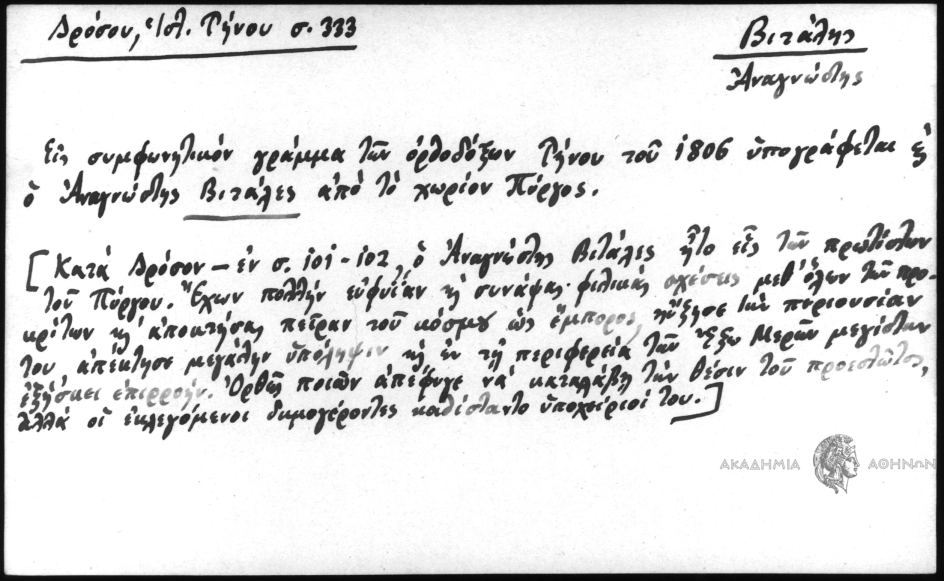 Δρόσου, Ἱστ. Τήνου σ. 333
Βιτάλης
Ἀναγνώστης
Εἰς συμφωνητικόν γράμμα τῶν ὀρθοδόξων Τήνου τοῦ 1806 ὑπογράφεται ϗ
ὁ Ἀναγνώστης Βιτάλες ἀπό τό χωρίον Πύργος.
[Κατά Δρόσον – ἐν σ. 101-102, ὁ Ἀναγνώστης Βιτάλες ἦτο εἷς τῶν πρωτίστων
τοῦ Πύργου. Ἔχων πολλήν εὐφυΐαν ϗ συνάψας φιλικάς σχέσεις μεθ' ὅλων τῶν προ-
κρίτων ϗ ἀποκτήσας πεῖραν τοῦ κόσμου ὡς ἔμπορος, ηὔξησε τήν περιουσίαν
του ἀπέκτησε μεγάλην ὑπόληψιν ϗ ἐν τῇ περιφερείᾳ τῶν Ἔξω Μερῶν μεγίστην
ἐξήσκει ἐπιρροήν. Ὀρθῶς ποιῶν ἀπέφυγε νά καταλάβῃ τήν θέσιν τοῦ προεστῶτος,
ἀλλά οἱ ἐκλεγόμενοι δημογέροντες καθίσταντο ὑποχείριοί του.]
ΑΚΑΔΗΜΙΑ ΑΘΗΝΩΝ